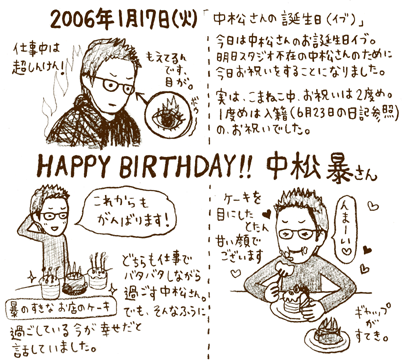 2006年1月17日(火)
「中松さんの誕生日(イブ)」
仕事中は
超しんけん!
もえてるん
です、
目が。
ギラッ
今日は中松さんのお誕生日イブ。
明日スタジオ不在の中松さんのために
今日お祝いをすることになりました。
実は、こまねこ中、お祝いは2度め。
1度めは入籍(6月23日の日記参照)
の、お祝いでした。
HAPPY BIRTHDAY!! 中松 暴さん
これからも
がんばります!
暴のすきな お店のケーキ
どちらも仕事で
バタバタしながら
過ごす中松さん。
でも、そんなふうに
過ごしている今が幸せだと
話していました。
ケーキを
目にした
とたん
甘い顔で
ございます
んまーい
ギャップが
すてき。